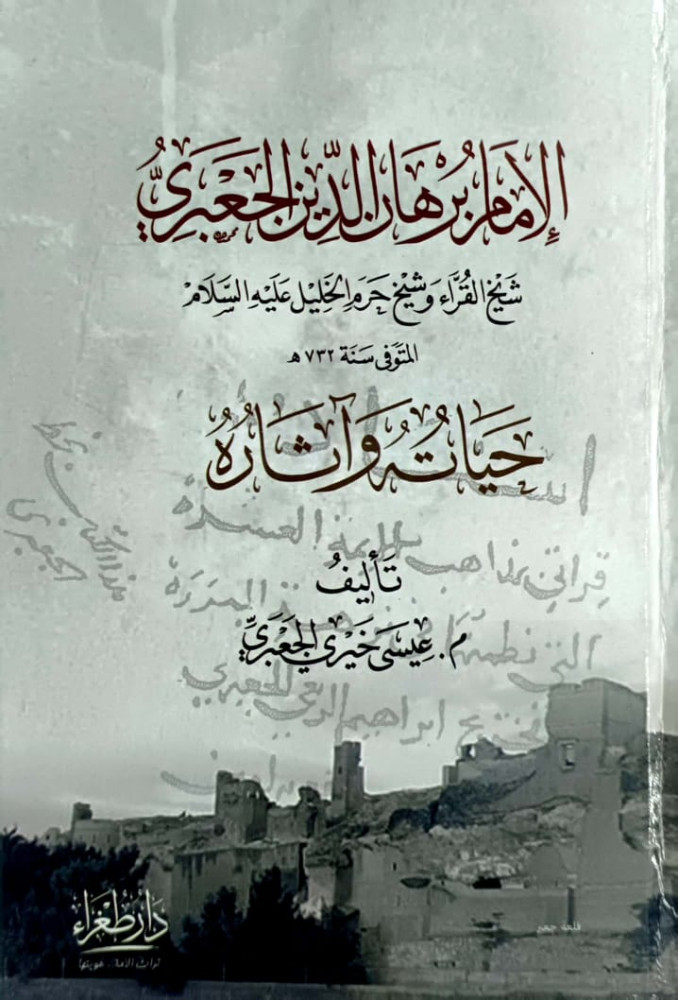 الإِمَامُ بُرْهَانُ الدِّينِ الجَعْبَرِيُّ
شَيْخُ القُرَّاءِ وَشَيْخُ حَرَمِ الخَلِيْلِ عَلَيْهِ السَّلَامُ
المتَوَفى سَنَة ٧٣٢ هـ
حَيَاتُهُ وَآثَارُهُ
تَأليفُ
م. عِيسَى خَيْرِي الجَعْبَرِيّ
دَار طغْراء
تراث الأمة.. هويتها
قلعة جعبر